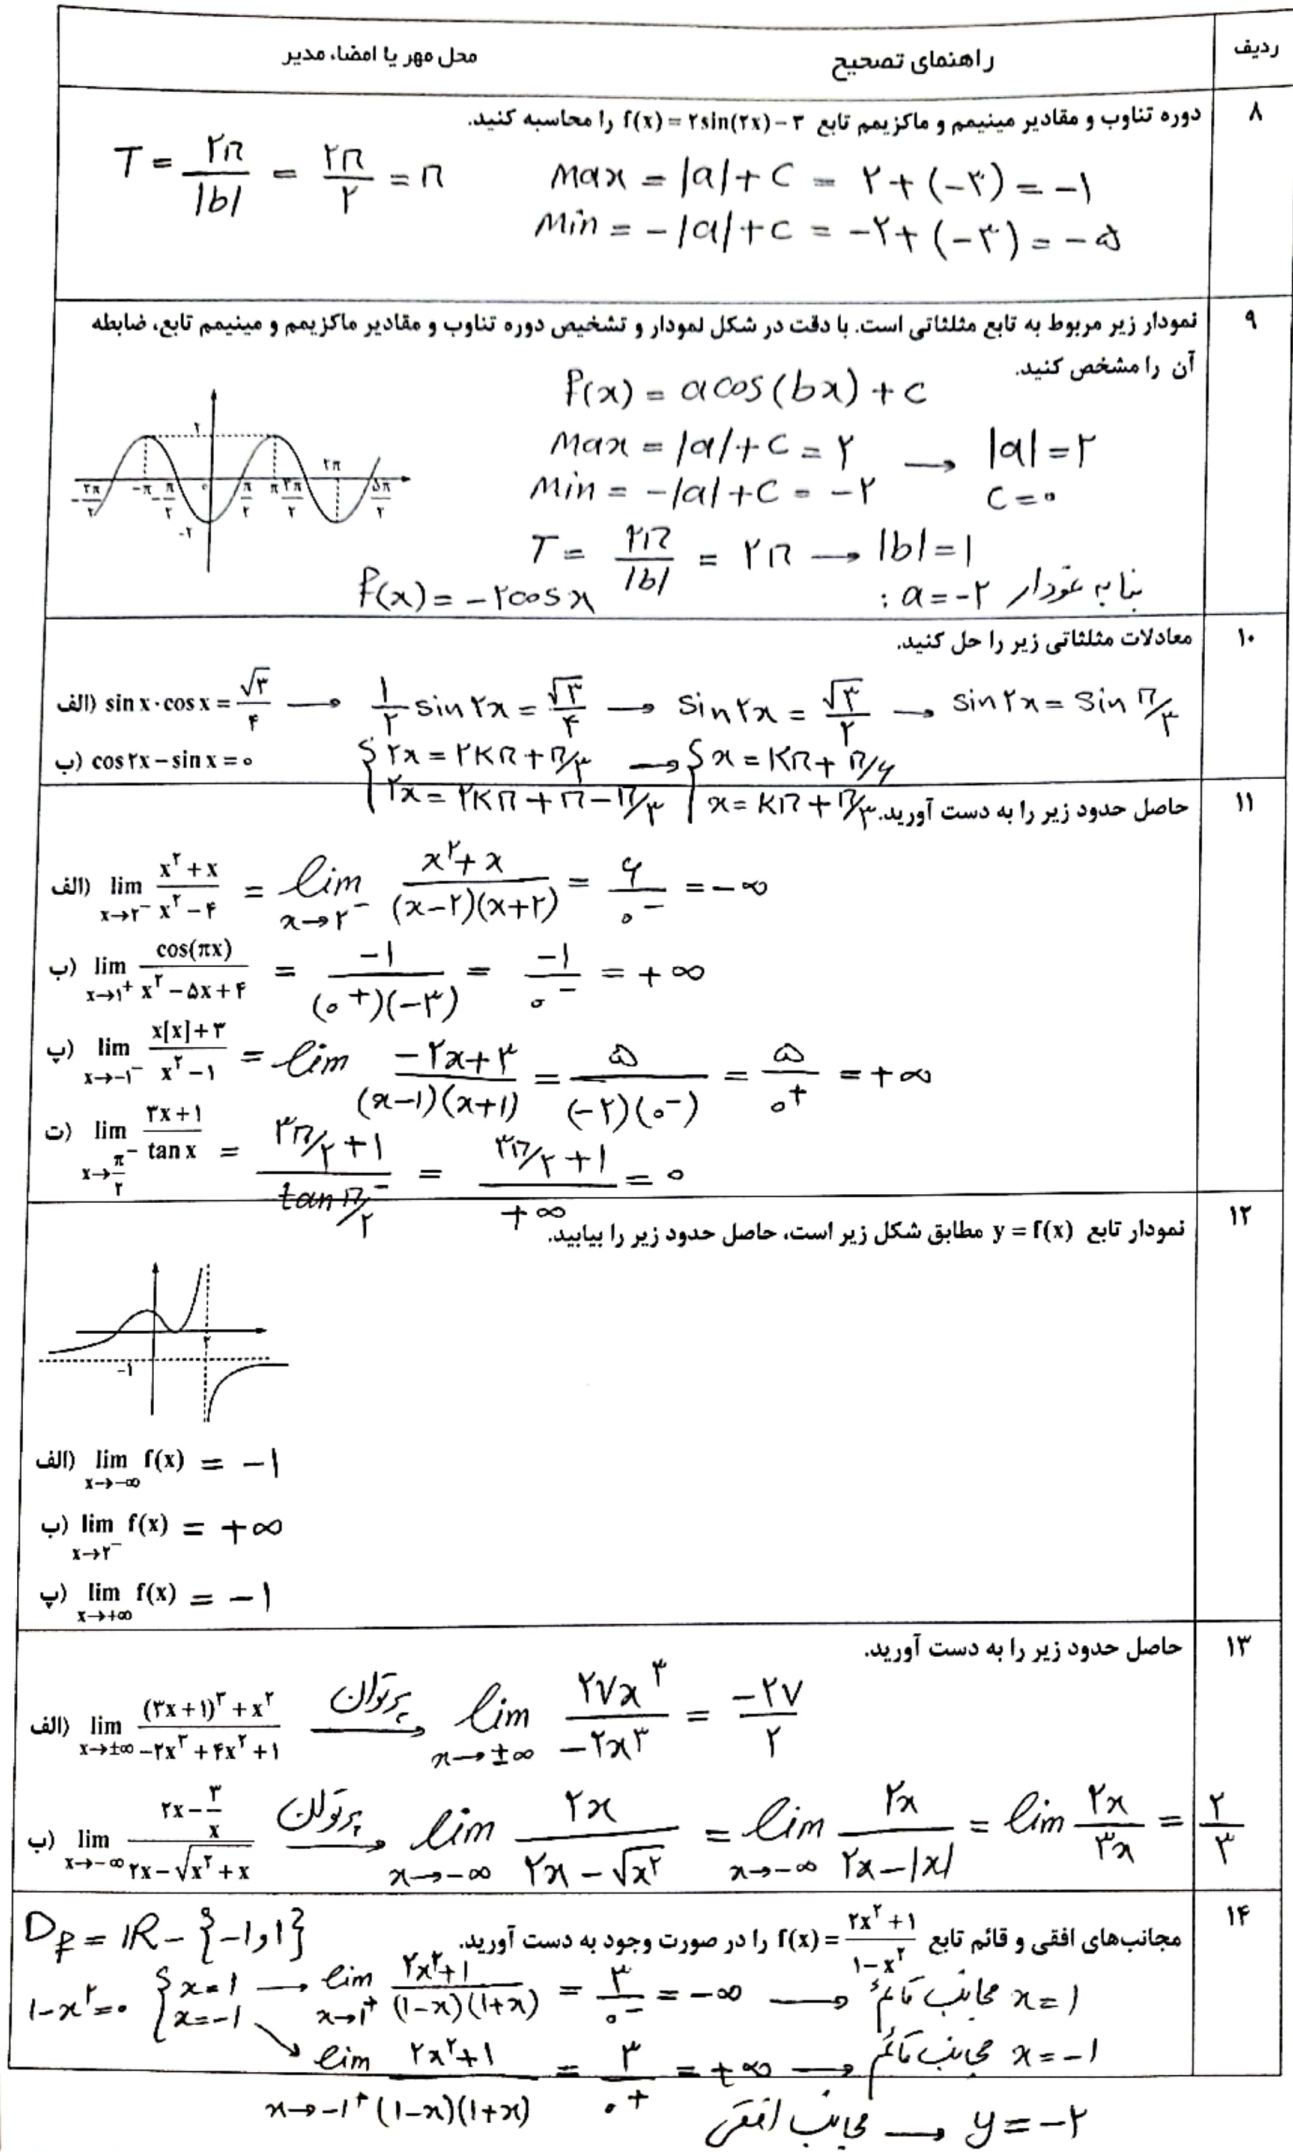 ردیف راهنمای تصحیح محل مهر یا امضاء مدیر
۸ دوره تناوب و مقادیر مینیمم و ماکزیمم تابع f(x) = ۲sin(۲x) − ۳ را محاسبه کنید.
T = ۲π/|b| = ۲π/۲ = π
Max = |a| + c = ۲ + (−۳) = −۱
Min = −|a| + c = −۲ + (−۳) = −۵
۹ نمودار زیر مربوط به تابع مثلثاتی است. با دقت در شکل نمودار و تشخیص دوره تناوب و مقادیر ماکزیمم و مینیمم تابع، ضابطه
آن را مشخص کنید.
f(x) = a cos(bx) + c
Max = |a| + c = ۲ → |a| = ۲
Min = −|a| + c = −۲ c = ۰
T = ۲π/|b| = ۲π → |b| = ۱
بنا به نمودار a = −۲ :
f(x) = −۲cos x
۲ ۲π
−۳π/۲ −π −π/۲ ۰ π/۲ π ۳π/۲ ۵π/۲
−۲
۱۰ معادلات مثلثاتی زیر را حل کنید.
الف) sin x · cos x = √۳/۴ → ۱/۲ sin ۲x = √۳/۴ → sin ۲x = √۳/۲ → sin ۲x = sin π/۳
ب) cos ۲x − sin x = ۰
{ ۲x = ۲kπ + π/۳ → { x = kπ + π/۶
۲x = ۲kπ + π − π/۳ x = kπ + π/۳
۱۱ حاصل حدود زیر را به دست آورید.
الف) lim x→۲⁻ (x² + x)/(x² − ۴) = lim x→۲⁻ (x² + x)/((x−۲)(x+۲)) = ۶/۰⁻ = −∞
ب) lim x→۱⁺ cos(πx)/(x² − ۵x + ۴) = −۱/((۰⁺)(−۳)) = −۱/۰⁻ = +∞
پ) lim x→−۱⁻ (x[x] + ۳)/(x² − ۱) = lim (−۲x + ۳)/((x−۱)(x+۱)) = ۵/((−۲)(۰⁻)) = ۵/۰⁺ = +∞
ت) lim x→π/۲⁻ (۳x + ۱)/tan x = (۳π/۲ + ۱)/tan π/۲⁻ = (۳π/۲ + ۱)/+∞ = ۰
۱۲ نمودار تابع y = f(x) مطابق شکل زیر است، حاصل حدود زیر را بیابید.
۲
−۱
الف) lim x→−∞ f(x) = −۱
ب) lim x→۲⁻ f(x) = +∞
پ) lim x→+∞ f(x) = −۱
۱۳ حاصل حدود زیر را به دست آورید.
الف) lim x→±∞ ((۳x+۱)³ + x²)/(−۲x³ + ۴x² + ۱) پرتوان → lim x→±∞ ۲۷x³/−۲x³ = −۲۷/۲
ب) lim x→−∞ (۲x − ۳/x)/(۲x − √(x² + x)) پرتوان → lim x→−∞ ۲x/(۲x − √x²) = lim x→−∞ ۲x/(۲x − |x|) = lim ۲x/۳x = ۲/۳
۱۴ مجانب‌های افقی و قائم تابع f(x) = (۲x² + ۱)/(۱ − x²) را در صورت وجود به دست آورید.
D_f = IR − {−۱ و ۱}
۱ − x² = ۰ { x = ۱ → lim x→۱⁺ (۲x² + ۱)/((۱−x)(۱+x)) = ۳/۰⁻ = −∞ → مجانب قائم x = ۱
x = −۱ → lim x→−۱⁺ (۲x² + ۱)/((۱−x)(۱+x)) = ۳/۰⁺ = +∞ → مجانب قائم x = −۱
مجانب افقی → y = −۲